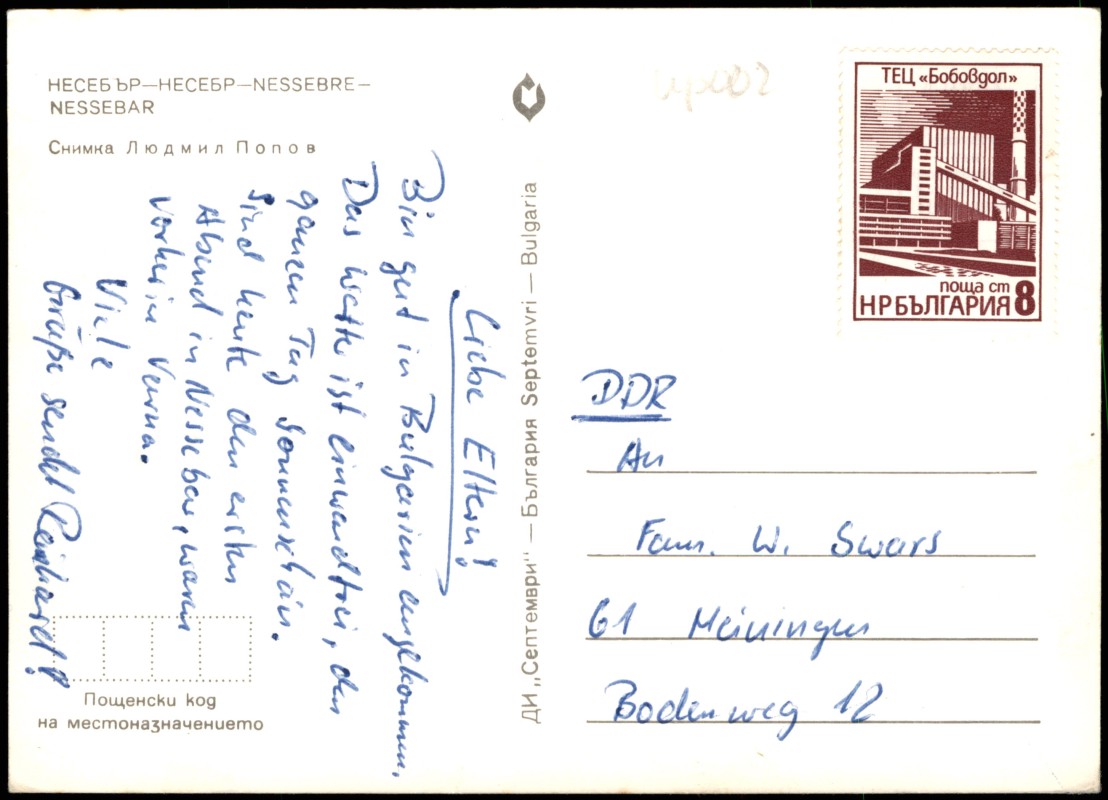 НЕСЕБЪР—НЕСЕБР—NESSEBRE—
NESSEBAR
Снимка Людмил Попов
Liebe Eltern!
Bin gut in Bulgarien angekommen.
Das Wetter ist einwandfrei, den
ganzen Tag Sonnenschein.
Sind heute den ersten
Abend in Nessebar, waren
vorher in Varna.
Viele
Grüße sendet Reinhard!
Пощенски код
на местоназначението
ДИ „Септември" — България Septemvri — Bulgaria
ТЕЦ «Бобовдол»
поща ст 8
НР БЪЛГАРИЯ
DDR
An
Fam. W. Swars
61 Meiningen
Bodenweg 12